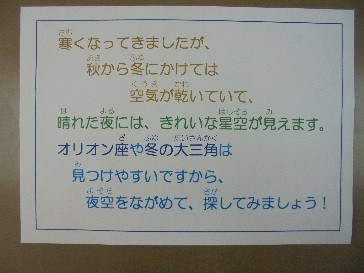 寒くなってきましたが、
秋から冬にかけては
空気が乾いていて、
晴れた夜には、きれいな星空が見えます。
オリオン座や冬の大三角は
見つけやすいですから、
夜空をながめて、探してみましょう！